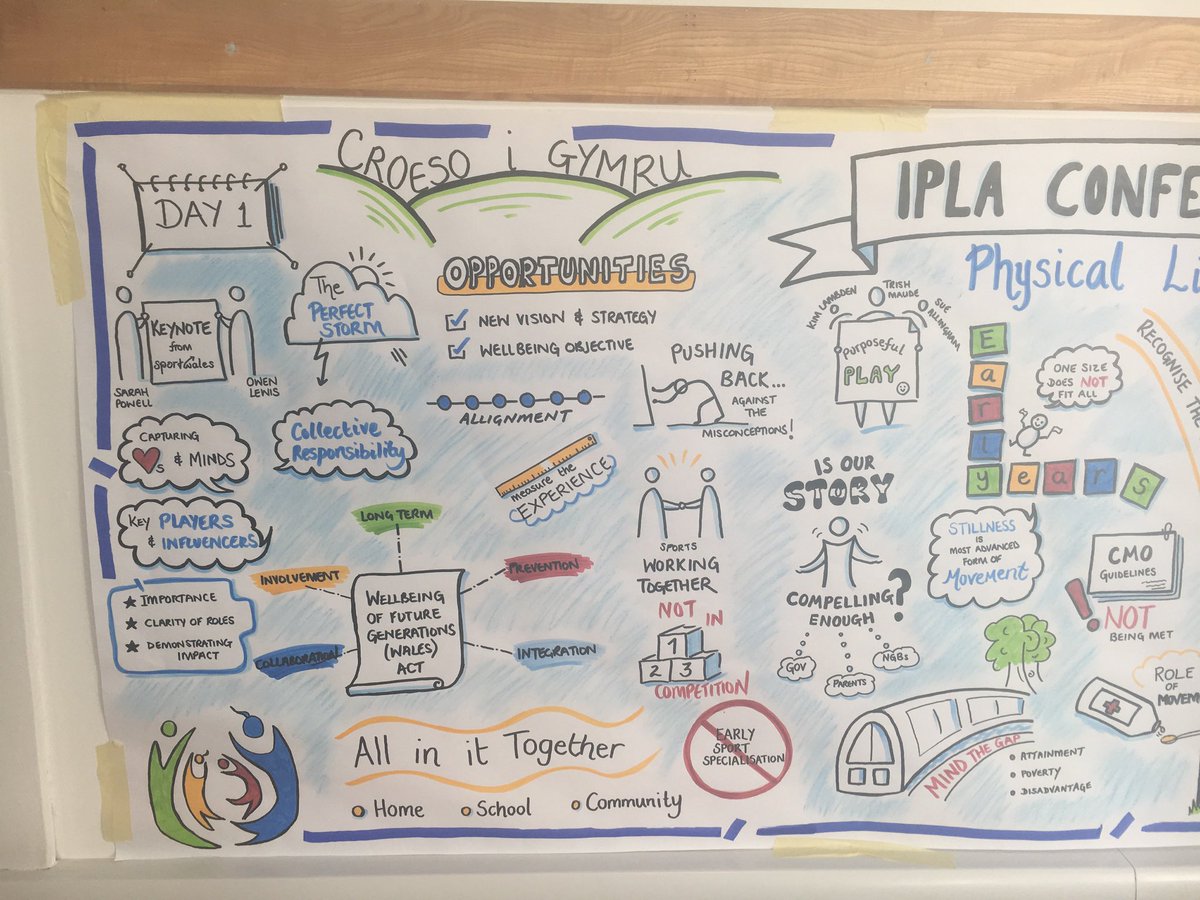 CROESO i GYMRU
DAY 1
IPLA CONFE
Physical Li
KEYNOTE
from
sportwales
SARAH
POWELL
OWEN
LEWIS
The
PERFECT
STORM
CAPTURING
S & MINDS
Collective
Responsibility
KEY PLAYERS
& INFLUENCERS
★ IMPORTANCE
★ CLARITY OF ROLES
★ DEMONSTRATING
IMPACT
OPPORTUNITIES
NEW VISION & STRATEGY
WELLBEING OBJECTIVE
ALLIGNMENT
measure the
EXPERIENCE
LONG TERM
INVOLVEMENT
PREVENTION
COLLABORATION
INTEGRATION
WELLBEING
OF FUTURE
GENERATIONS
(WALES)
ACT
All in it Together
Home
School
Community
PUSHING
BACK...
AGAINST
THE
MISCONCEPTIONS!
SPORTS
WORKING
TOGETHER
NOT IN
1
2 3
COMPETITION
EARLY
SPORT
SPECIALISATION
KIM LAMBDEN
TRISH
MAUDE
SUE
ALLINGHAM
Purposeful
PLAY
IS OUR
STORY
COMPELLING
ENOUGH?
GOV
PARENTS
NGBs
Early
years
ONE SIZE
DOES NOT
FIT ALL
RECOGNISE THE
STILLNESS
IS
MOST ADVANCED
FORM OF
MOVEMENT
CMO
GUIDELINES
! NOT
BEING MET
ROLE
OF
MOVEME
MIND THE GAP
• ATTAINMENT
• POVERTY
• DISADVANTAGE